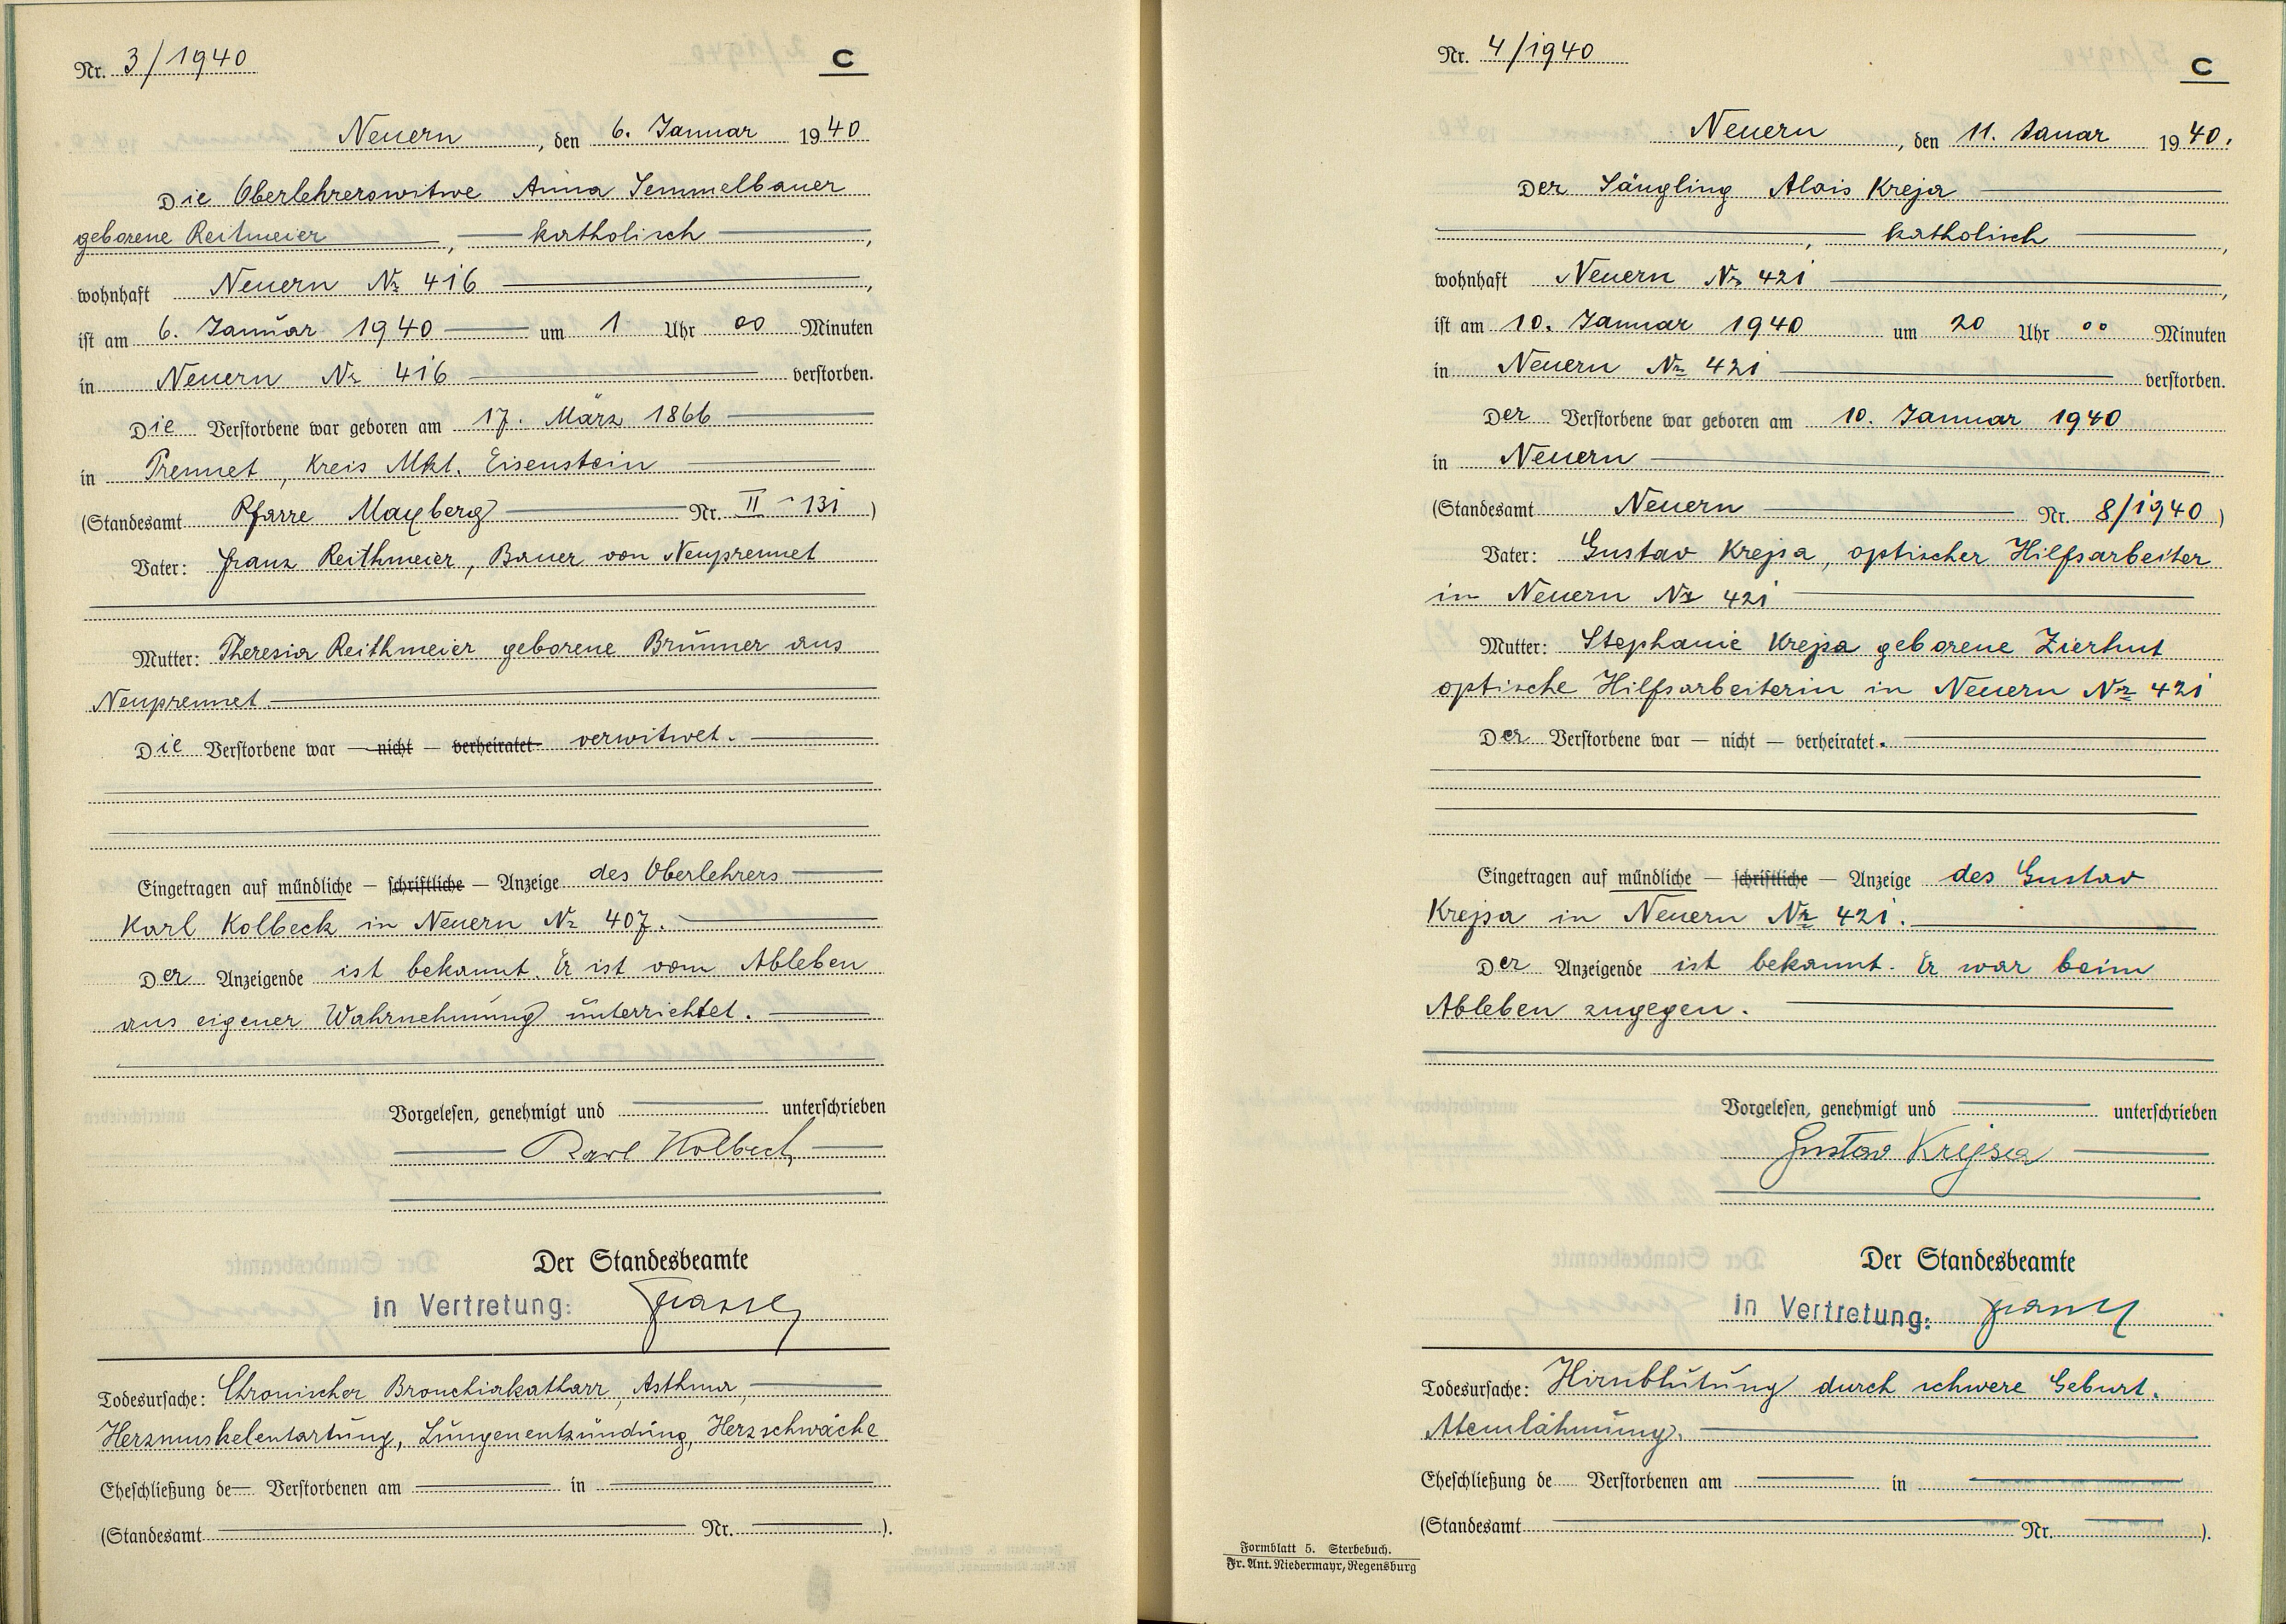 Nr. 3/1940
C
Neuern, den 6. Januar 1940
Die Oberlehrerswitwe Anna Semmelbauer
geborene Reitmeier, katholisch,
wohnhaft Neuern Nr 416,
ist am 6. Januar 1940 um 1 Uhr 00 Minuten
in Neuern Nr 416 verstorben.
Die Verstorbene war geboren am 17. März 1866
in Prennet, Kreis Mkt. Eisenstein
(Standesamt Pfarre Mayberg Nr. II - 131)
Vater: Franz Reithmeier, Bauer von Neuprennet
Mutter: Theresia Reithmeier geborene Brunner aus
Neuprennet
Die Verstorbene war — nicht — verheiratet verwitwet.
Eingetragen auf mündliche — schriftliche — Anzeige des Oberlehrers
Karl Kolbeck in Neuern Nr 407.
Der Anzeigende ist bekannt. Er ist vom Ableben
aus eigener Wahrnehmung unterrichtet.
Vorgelesen, genehmigt und unterschrieben
Karl Kolbeck
Der Standesbeamte
in Vertretung:
Todesursache: Chronischer Bronchiakatharr, Asthma,
Herzmuskelentartung, Lungenentzündung, Herzschwäche
Eheschließung de Verstorbenen am in
(Standesamt Nr. ).
Nr. 4/1940
C
Neuern, den 11. Januar 1940.
Der Säugling Alois Krejsa
, katholisch,
wohnhaft Neuern Nr 421,
ist am 10. Januar 1940 um 20 Uhr 00 Minuten
in Neuern Nr 421 verstorben.
Der Verstorbene war geboren am 10. Januar 1940
in Neuern
(Standesamt Neuern Nr. 8/1940)
Vater: Gustav Krejsa, optischer Hilfsarbeiter
in Neuern Nr 421
Mutter: Stephanie Krejsa geborene Zierhut
optische Hilfsarbeiterin in Neuern Nr 421
Der Verstorbene war — nicht — verheiratet.
Eingetragen auf mündliche — schriftliche — Anzeige des Gustav
Krejsa in Neuern Nr 421.
Der Anzeigende ist bekannt. Er war beim
Ableben zugegen.
Vorgelesen, genehmigt und unterschrieben
Gustav Krejsa
Der Standesbeamte
in Vertretung:
Todesursache: Hirnblutung durch schwere Geburt.
Atemlähmung.
Eheschließung de Verstorbenen am in
(Standesamt Nr. ).
Formblatt 5. Sterbebuch.
Fr. Ant. Niedermayr, Regensburg